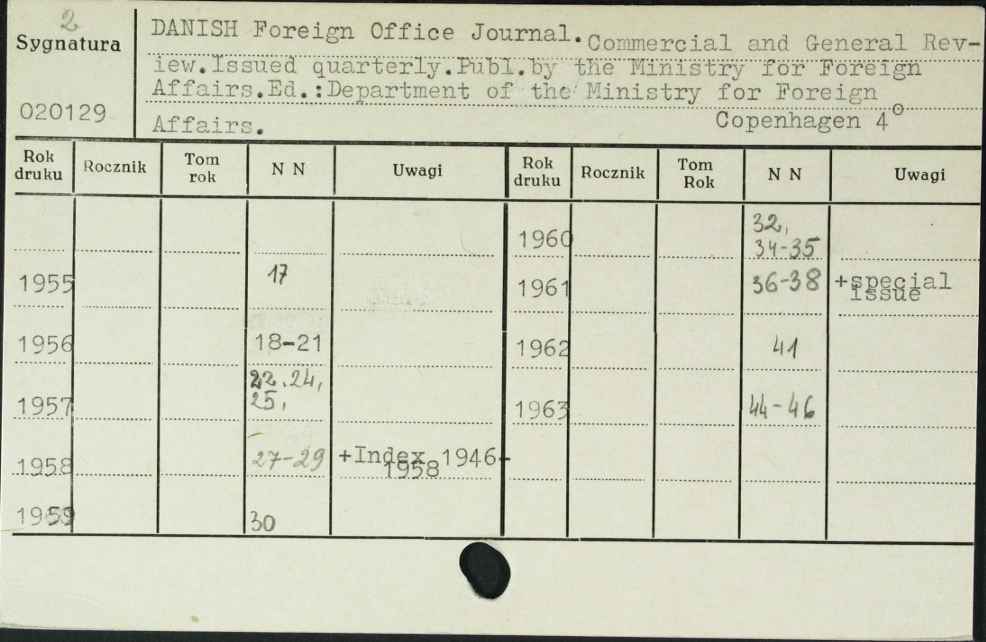 2
Sygnatura
020129
DANISH Foreign Office Journal. Commercial and General Rev-
iew.Issued quarterly.Publ.by the Ministry for Foreign
Affairs.Ed.:Department of the Ministry for Foreign
Affairs. Copenhagen 4°
Rok druku Rocznik Tom rok N N Uwagi Rok druku Rocznik Tom Rok N N Uwagi
1960 32, 34-35
1955 17 1961 36-38 +special issue
1956 18-21 1962 41
1957 22.24, 25, 1963 44-46
1958 27-29 +Index 1946-1958
1959 30